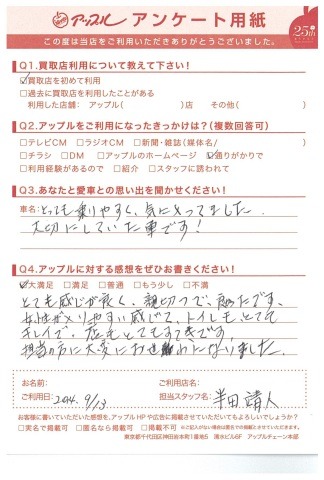 アップル アンケート用紙
25th
この度は当店をご利用いただきありがとうございました。
Q1.買取店利用について教えて下さい!
☑買取店を初めて利用
□過去に買取店を利用したことがある
利用した店舗: アップル( )店 その他( )
Q2.アップルをご利用になったきっかけは?(複数回答可)
□テレビCM □ラジオCM □新聞・雑誌(媒体名 )
□チラシ □DM □アップルのホームページ ☑通りがかりで
□利用経験があるので □紹介 □スタッフに誘われて
Q3.あなたと愛車との思い出を聞かせください!
車名: とっても乗りやすく、気に入ってました。
大切にしていた車です!
Q4.アップルに対する感想をぜひお書きください!
☑大満足 □満足 □普通 □もう少し □不満
とても感じが良く、親切で、
女性が入りやすい感じで、トイレも、とても
キレイで、店もとてもすてきです。
担当の方に大変にお世わになりました。
お名前: ご利用店名:
ご利用日: 2014. 9/13 担当スタッフ名: 半田 靖人
お客様に書いていただいた感想を、アップルHPや広告に掲載させていただいてもよろしいでしょうか?
□実名で掲載可 □匿名なら掲載可 □不可 ※ご記入がない場合は匿名での掲載とさせていただきます。
東京都千代田区神田岩本町1番地5 清水ビル6F アップルチェーン本部